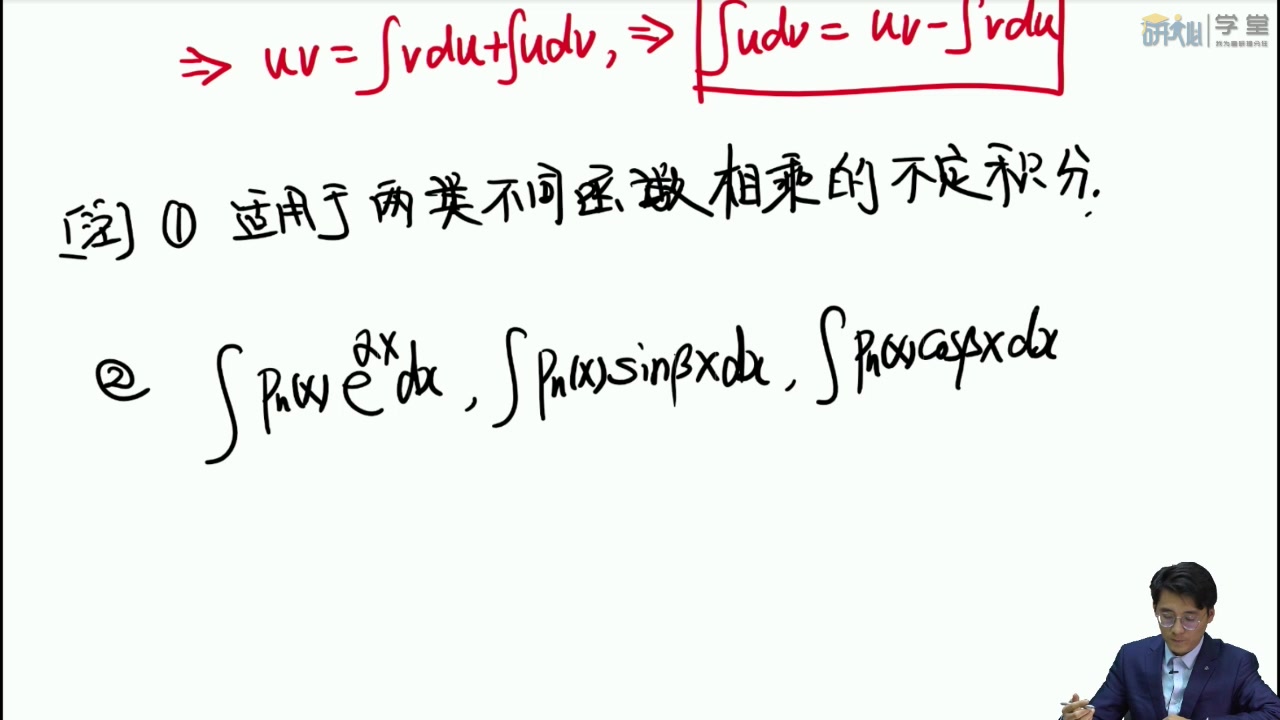 ⇒ uv = ∫vdu+∫udv, ⇒ ∫udv = uv-∫vdu
研火山|学堂
[注] ① 适用于两类不同函数相乘的不定积分.
② ∫Pn(x)e^{αx}dx, ∫Pn(x)sinβxdx, ∫Pn(x)cosβxdx